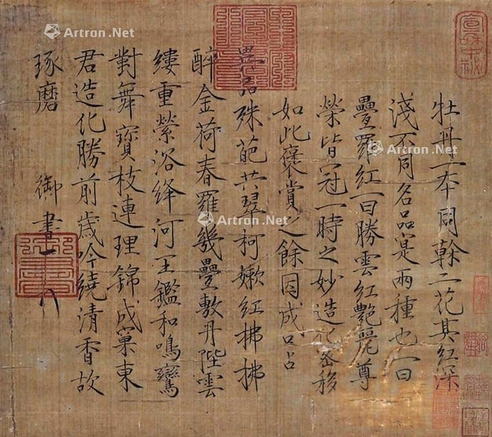 牡丹一本同幹二花其紅深
淺不同名品是兩種也一曰
疊羅紅一曰勝雲紅艷麗尊
榮皆冠一時之妙造化密移
如此褒賞之餘因成口占
異品殊葩共翠柯嫩紅拂拂
醉金荷春羅幾疊敷丹陛雲
縷重縈浴絳河玉鑑和鳴鸞
對舞寶枝連理錦成窠東
君造化勝前歲吟繞清香故
琢磨
御書
Artron.Net
Artron.Net
Artron.Net
Artron.Net
Artron.Net